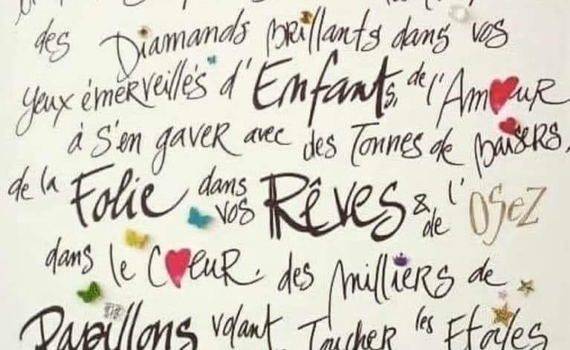 des Diamands Brillants dans vos
yeux émerveillés d'Enfants, de l'Amour
à s'en gaver avec des Tonnes de Baisers,
de la Folie dans vos Rêves & de l'Osez
dans le Cœur. des Milliers de
Papillons volant, Toucher les Etoiles